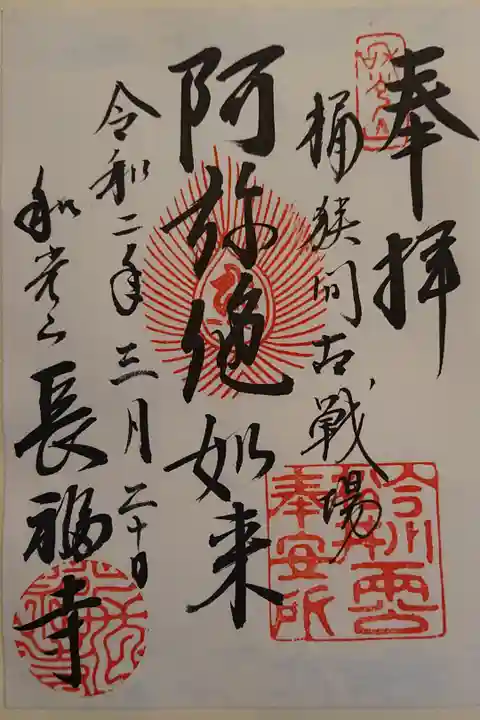 奉拝
桶狭間古戦場
阿弥絶如来
令和二年三月二十日
和光山長福寺
今川
両公
奉安所